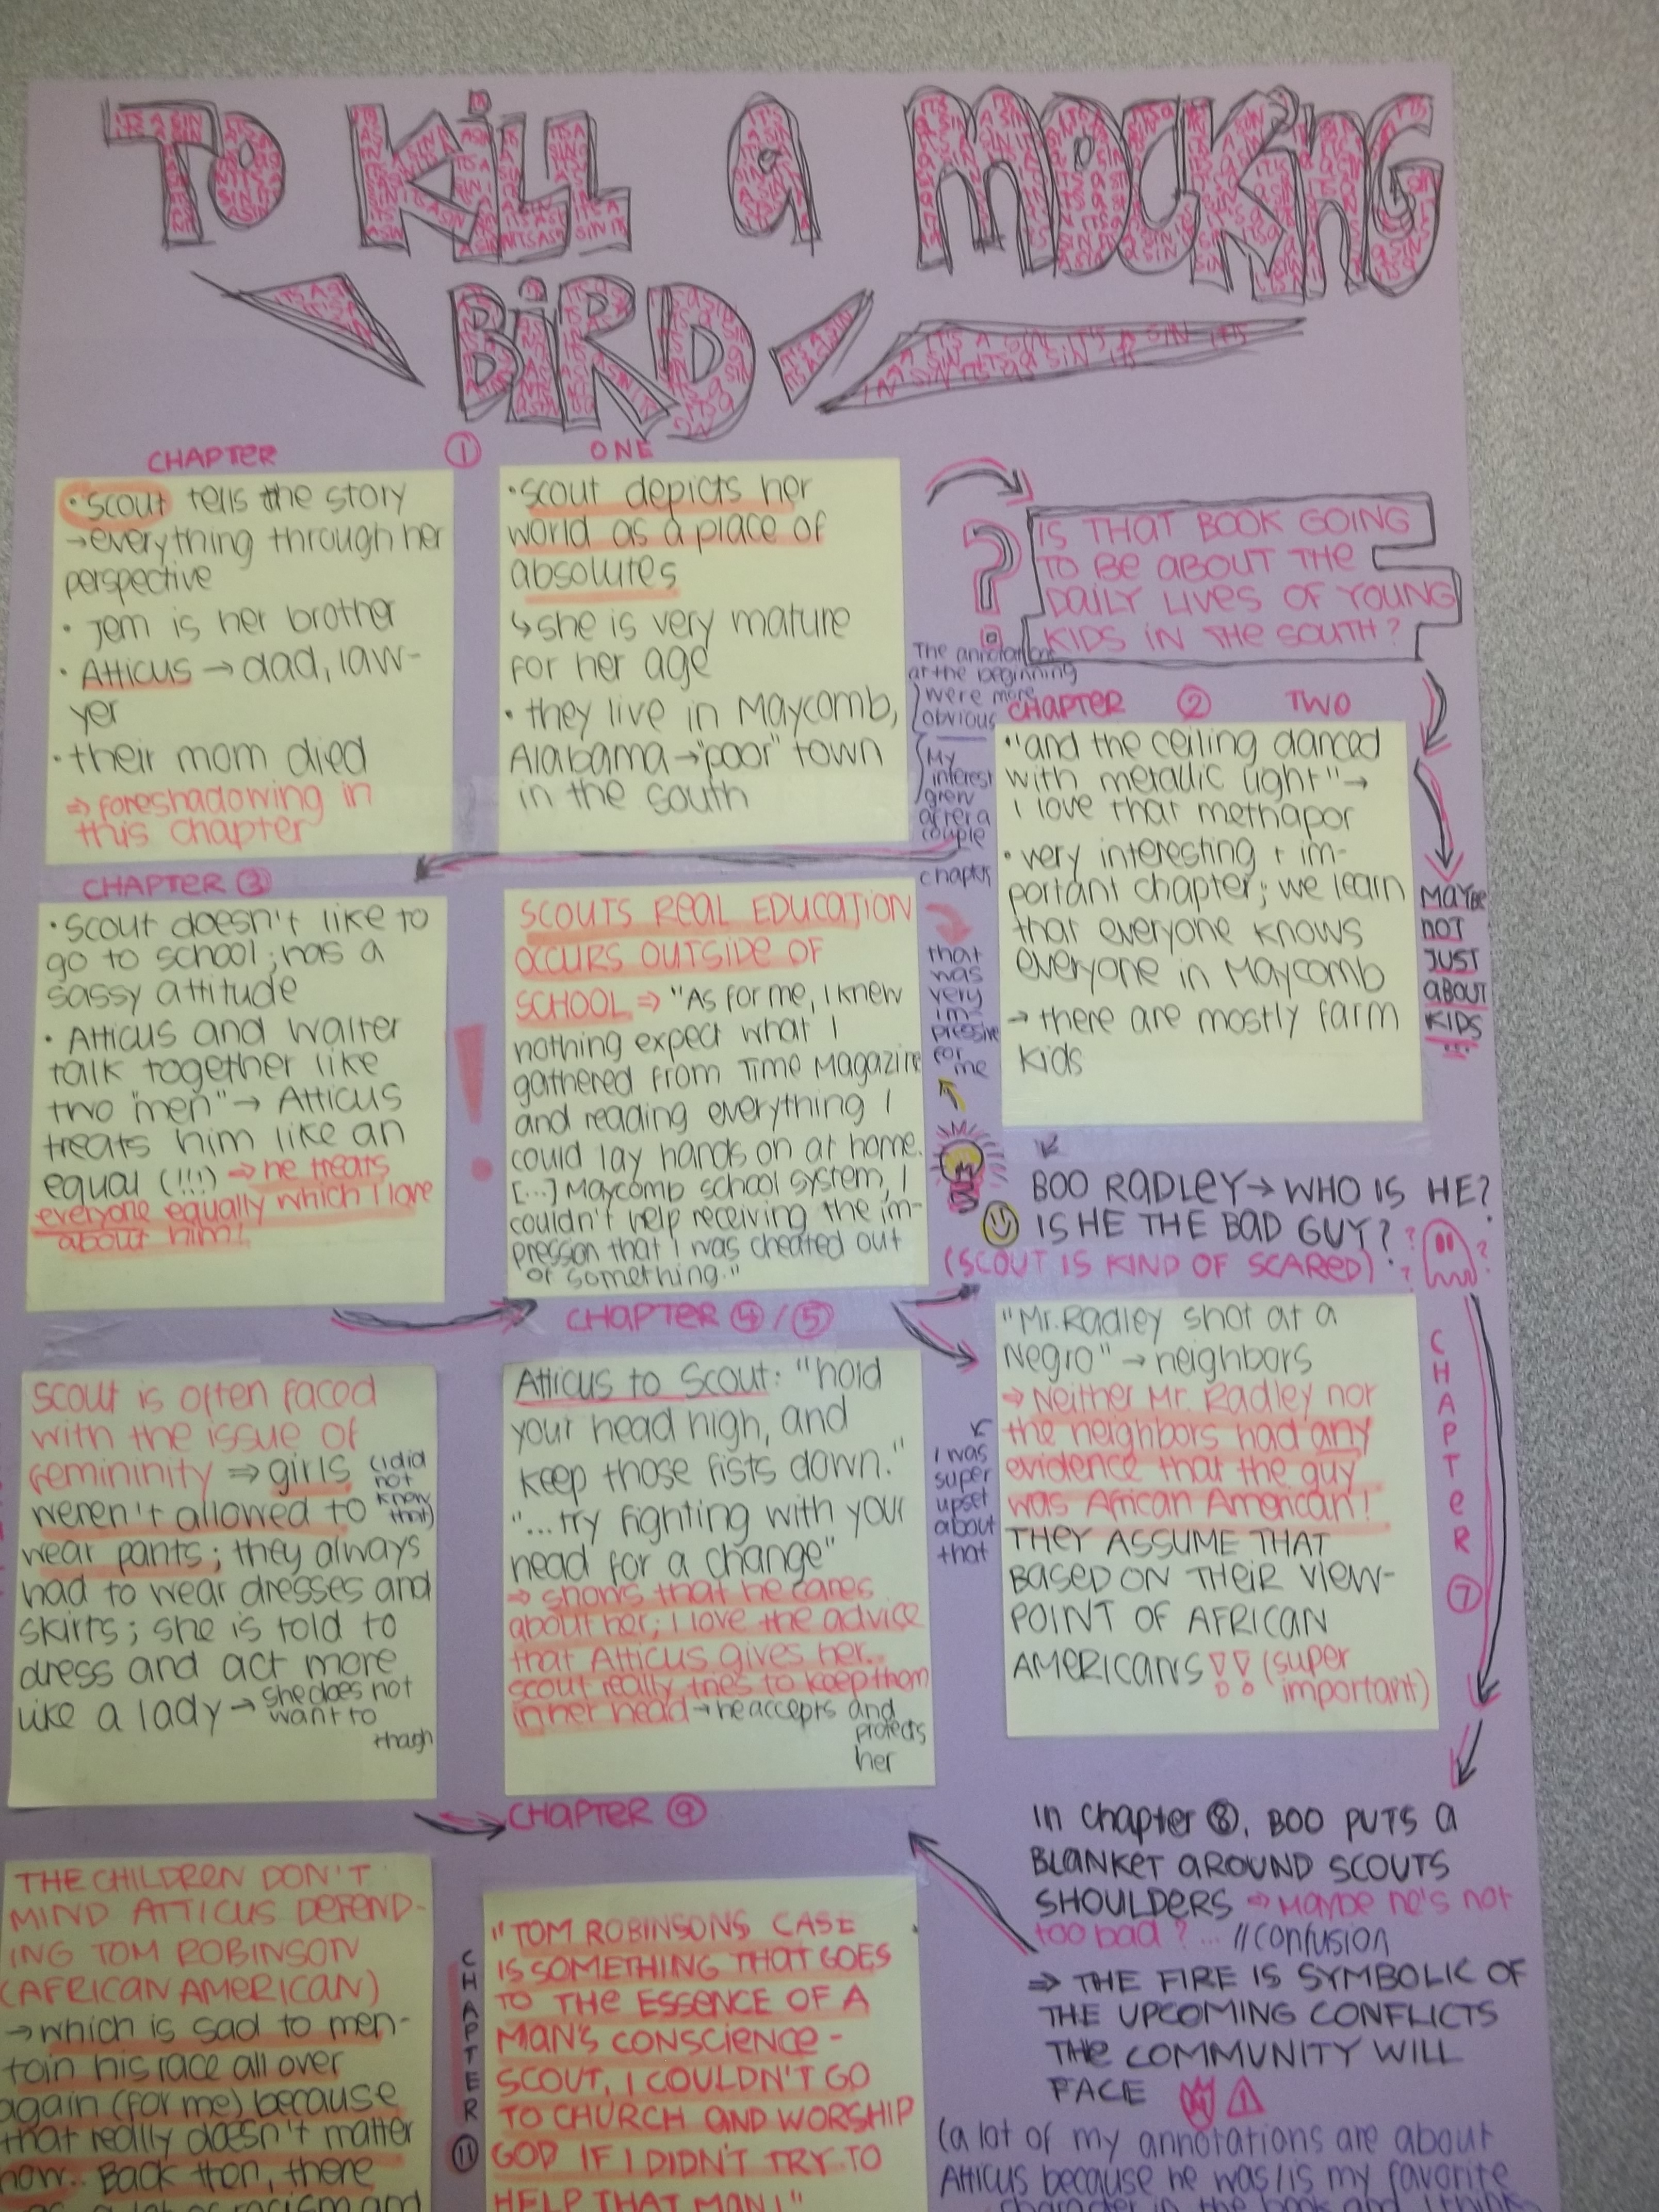 TO KILL A MOCKING
BIRD
CHAPTER ① ONE
• Scout tells the story
→everything through her
perspective
• Jem is her brother
• Atticus → dad, law-
yer
• their mom died
⇒ foreshadowing in
this chapter
• Scout depicts her
world as a place of
absolutes
↳she is very mature
for her age
• they live in Maycomb,
Alabama → "poor" town
in the south
?
IS THAT BOOK GOING
TO BE ABOUT THE
DAILY LIVES OF YOUNG
KIDS IN THE SOUTH?
The annotations
at the beginning
were more
obvious
My
interest
grew
after a
couple
chapter
CHAPTER ② TWO
"and the ceiling danced
with metallic light" →
i love that methapor
• very interesting + im-
portant chapter; we learn
that everyone knows
everyone in Maycomb
→ there are mostly farm
kids
MAYBE
NOT
JUST
ABOUT
KIDS
CHAPTER ③
• Scout doesn't like to
go to school; has a
sassy attitude
• Atticus and Walter
talk together like
two "men" → Atticus
treats him like an
equal (!!!) ⇒ he treats
everyone equally which I love
about him!
!
SCOUTS REAL EDUCATION
OCCURS OUTSIDE OF
SCHOOL ⇒ "As for me, I knew
nothing expect what I
gathered from Time Magazine
and reading everything I
could lay hands on at home.
[...] Maycomb school system, I
couldn't help receiving the im-
pression that I was cheated out
of something."
that
was
very
im
pressive
for
me
BOO RADLEY → WHO IS HE?
IS HE THE BAD GUY?
(SCOUT IS KIND OF SCARED)
CHAPTER ④/⑤
Scout is often faced
with the issue of
femininity ⇒ girls
(i did
not
know
that)
weren't allowed to
wear pants; they always
had to wear dresses and
skirts; she is told to
dress and act more
like a lady → she does not
want to
thagh
Atticus to Scout: "hold
your head high, and
keep those fists down."
"...try fighting with your
head for a change"
⇒ shows that he cares
about her; I love the advice
that Atticus gives her.
Scout really tries to keep them
in her head → he accepts and
protects
her
I was
super
upset
about
that
"Mr. Radley shot at a
Negro" → neighbors
⇒ Neither Mr. Radley nor
the neighbors had any
evidence that the guy
was African American!
THEY ASSUME THAT
BASED ON THEIR VIEW-
POINT OF AFRICAN
AMERICANS !! (super
important)
CHAPTER ⑦
CHAPTER ⑨
THE CHILDREN DON'T
MIND ATTICUS DEFEND-
ING TOM ROBINSON
(AFRICAN AMERICAN)
→ which is sad to men-
toin his race all over
again (for me) because
that really doesn't matter
now.. Back then, there
a lot of racism and
CHAPTER ⑪
"TOM ROBINSONS CASE
IS SOMETHING THAT GOES
TO THE ESSENCE OF A
MAN'S CONSCIENCE -
SCOUT, I COULDN'T GO
TO CHURCH AND WORSHIP
GOD IF I DIDN'T TRY TO
HELP THAT MAN!"
In Chapter ⑧, BOO PUTS A
BLANKET AROUND SCOUTS
SHOULDERS ⇒ MAYBE he's not
too bad? ... //confusion
⇒ THE FIRE IS SYMBOLIC OF
THE UPCOMING CONFLICTS
THE COMMUNITY WILL
FACE
(a lot of my annotations are about
Atticus because he was/is my favorite
character in the book and I